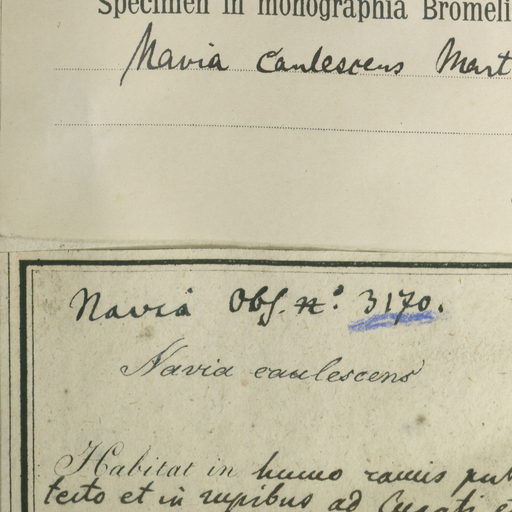 Specimen in monographia Bromeli
Navia caulescens Mart
Navia Obs. nº. 3170.
Navia caulescens
Habitat in humo ramis put
tecto et in rupibus ad Cupati et